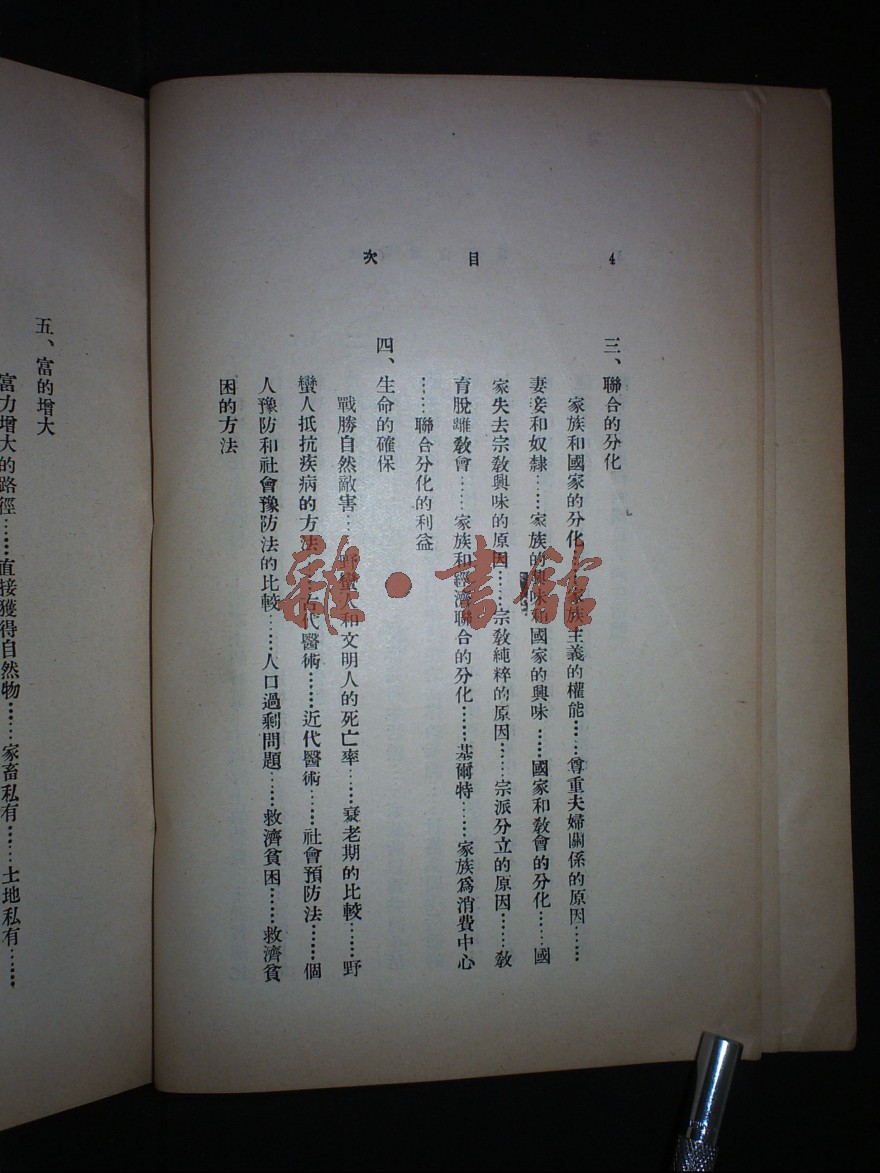 4
目次
三、聯合的分化
家族和國家的分化……家族主義的權能……尊重夫婦關係的原因……
妻妾和奴隷……家族的興味和國家的興味……國家和教會的分化……國
家失去宗教興味的原因……宗教純粹的原因……宗派分立的原因……教
育脫離教會……家族和經濟聯合的分化……基爾特……家族爲消費中心
……聯合分化的利益
四、生命的確保
戰勝自然敵害……野蠻人和文明人的死亡率……衰老期的比較……野
蠻人抵抗疾病的方法……古代醫術……近代醫術……社會預防法……個
人豫防和社會豫防法的比較……人口過剩問題……救濟貧困……救濟貧
困的方法
五、富的增大
富力增大的路徑……直接獲得自然物……家畜私有……土地私有……
雜·書館